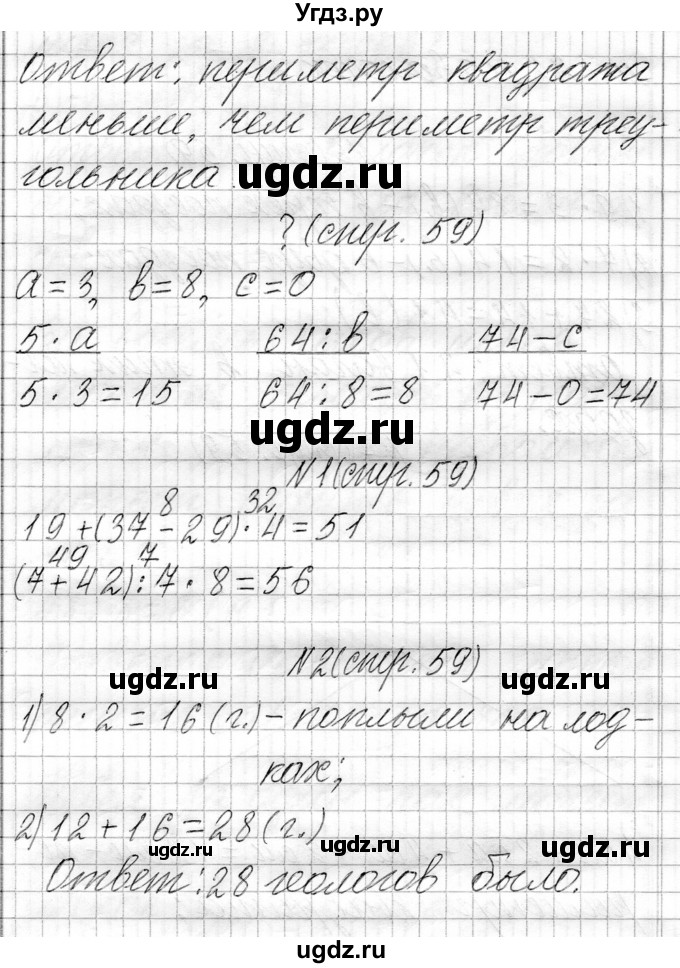 Угдз.ру
Ответ: периметр квадрата
меньше, чем периметр треу-
гольника
ugdz.ru
? (стр. 59)
a = 3, в = 8, c = 0
5 · a 64 : в 74 - c
5 · 3 = 15 64 : 8 = 8 74 - 0 = 74
ugdz.ru
N1 (стр. 59)
8 32
19 + (37 - 29) · 4 = 51
49 7
(7 + 42) : 7 · 8 = 56
N2 (стр. 59)
ugdz.ru ugdz.ru
1) 8 · 2 = 16 (г.) - поплыли на лод-
ках;
2) 12 + 16 = 28 (г.)
ugdz.ru ugdz.ru
Ответ: 28 геологов было.
ugdz.ru